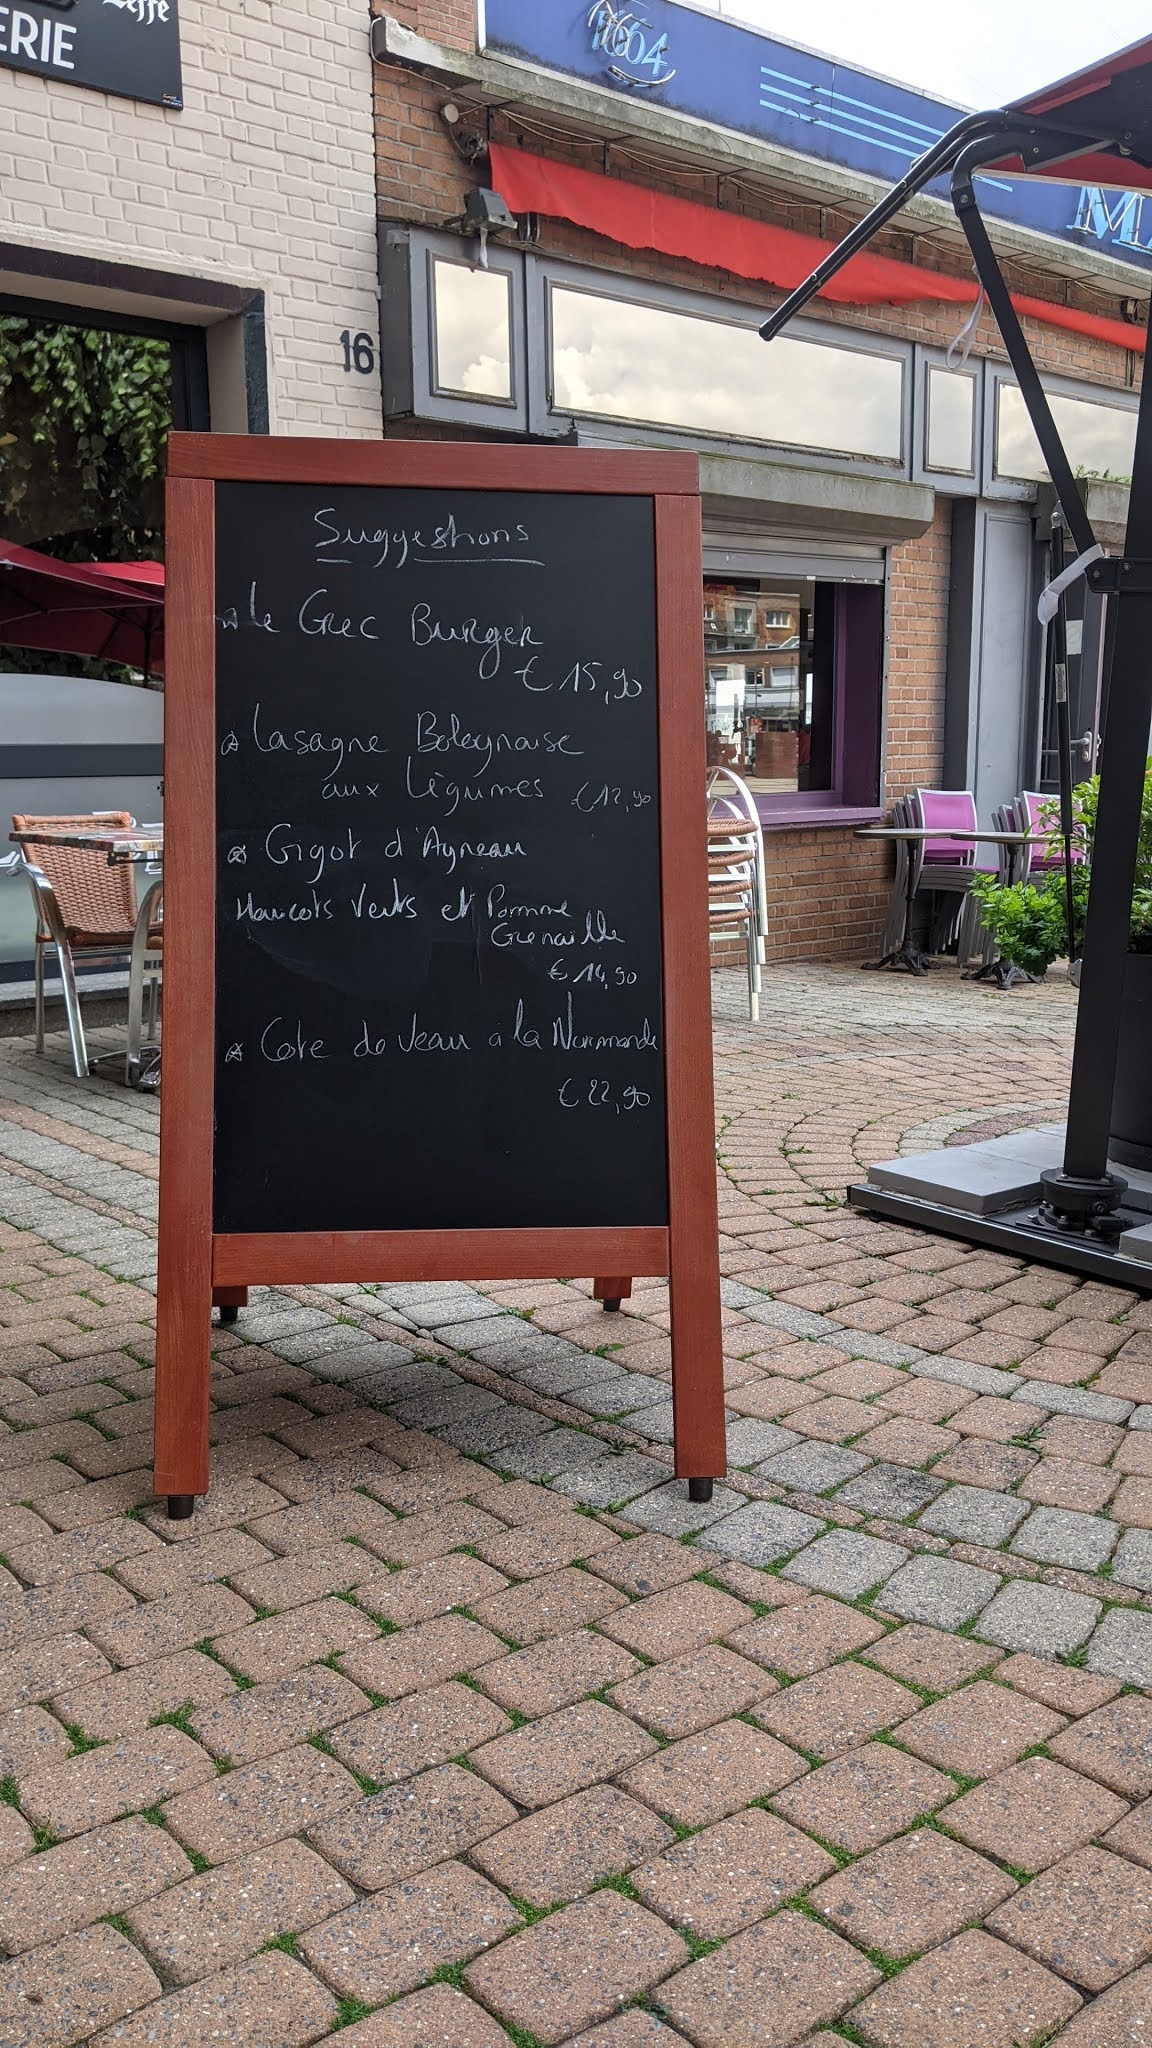 Leffe
ERIE
1664
MA
16
Suggestions
le Grec Burger
€ 15,90
Lasagne Bolognaise
aux légumes €12,90
Gigot d'Agneau
Haricots Verts et Pomme
Grenaille
€ 14,90
Cote de Veau à la Normande
€ 22,90